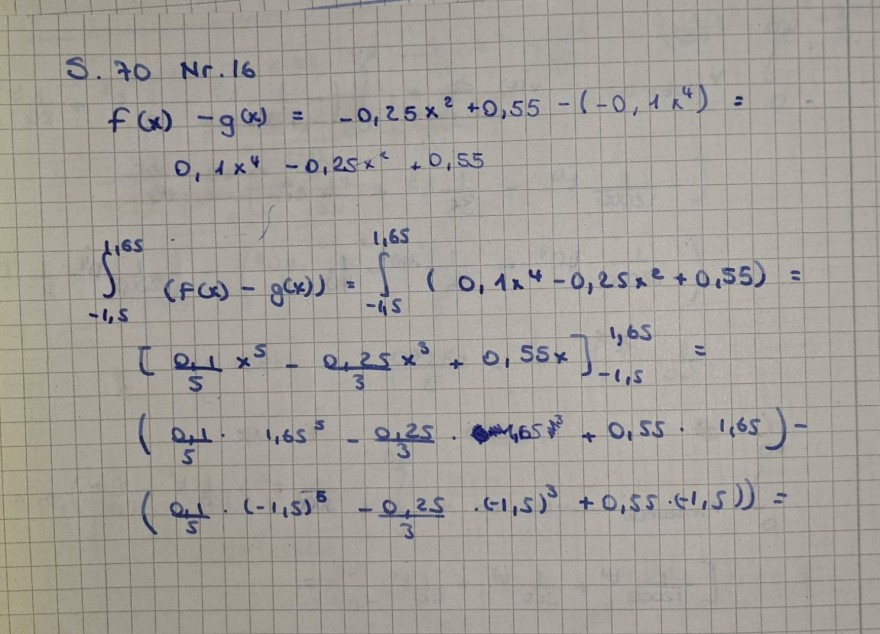 S. 70 Nr. 16
f(x) - g(x) = -0,25x² + 0,55 - (-0,1x⁴) =
0,1x⁴ - 0,25x² + 0,55
∫_{-1,5}^{1,65} (f(x) - g(x)) = ∫_{-1,5}^{1,65} ( 0,1x⁴ - 0,25x² + 0,55) =
[ 0,1/5 x⁵ - 0,25/3 x³ + 0,55x ]_{-1,5}^{1,65} =
( 0,1/5 · 1,65⁵ - 0,25/3 · 1,65³ + 0,55 · 1,65 ) -
( 0,1/5 · (-1,5)⁵ - 0,25/3 · (-1,5)³ + 0,55 · (-1,5)) =